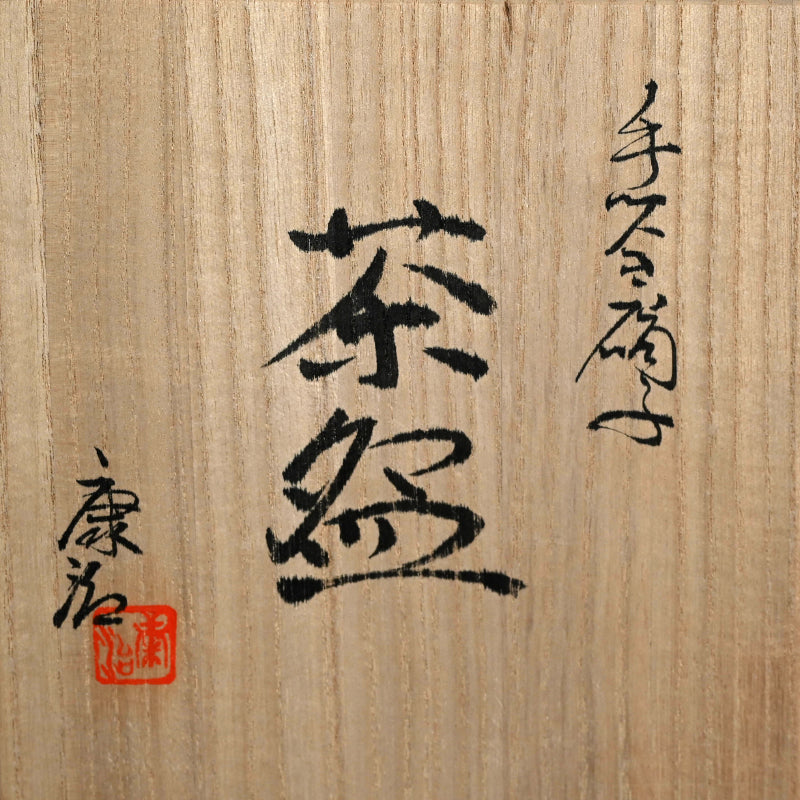 手吹き硝子
茶盌
康治
康治